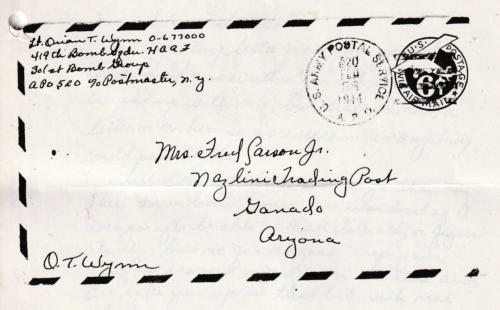 Lt. Orian T. Wynn O-677000
419th Bomb Sqdn. HAAF
301st Bomb Group
APO 520 c/o Postmaster, N.Y.
U.S. ARMY POSTAL SERVICE
A.P.O.
520
FEB
1944
U.S. POSTAGE
VIA AIR MAIL
6¢
Mrs. Fred Carson Jr.
Nazlini Trading Post
Ganado
Aryona
O.T. Wynn